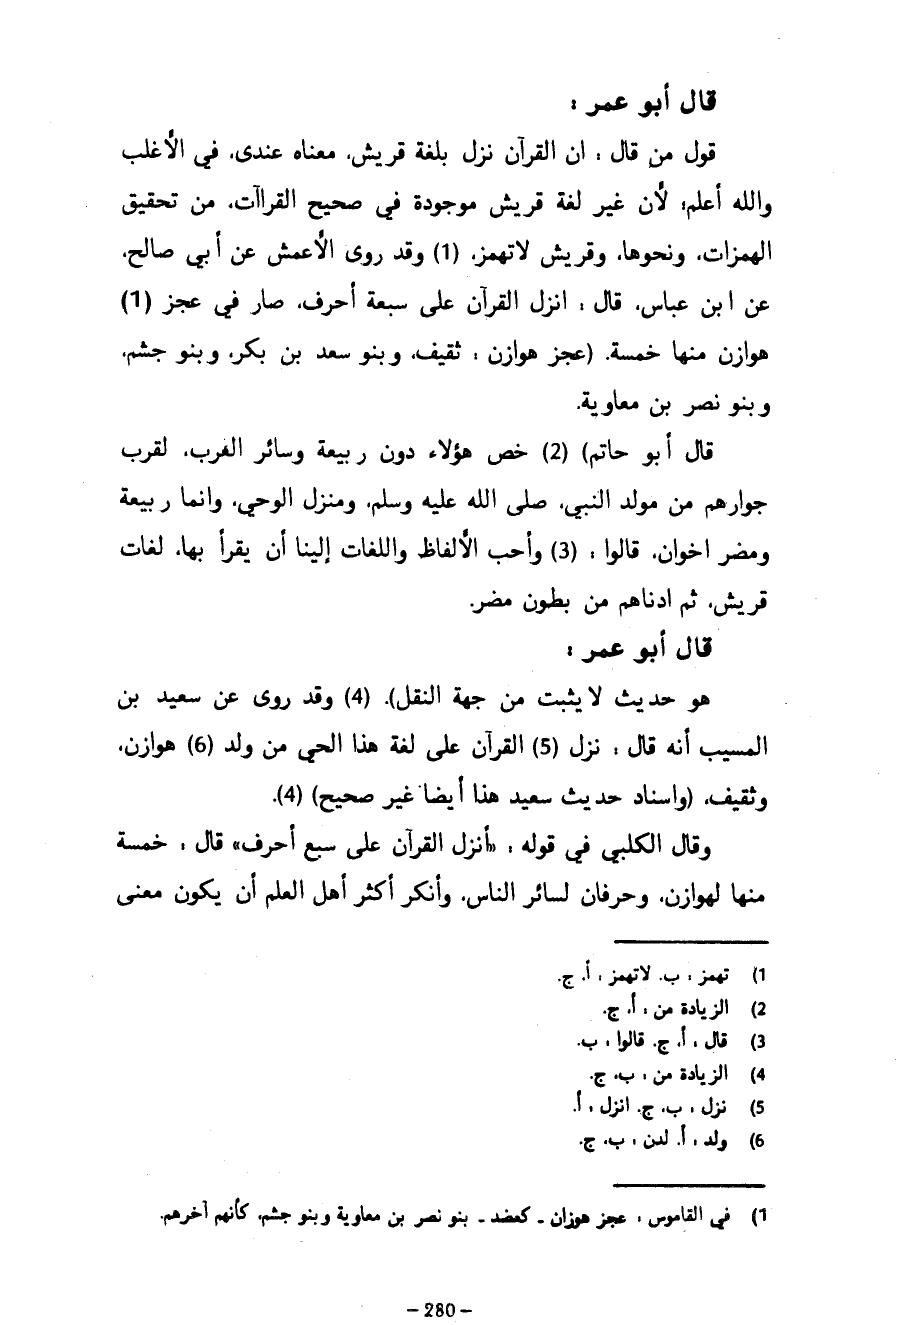 قال أبو عمر :
قول من قال : ان القرآن نزل بلغة قريش، معناه عندى، في الأغلب
والله أعلم؛ لأن غير لغة قريش موجودة في صحيح القراآت، من تحقيق
الهمزات، ونحوها، وقريش لاتهمز، (1) وقد روى الأعمش عن أبي صالح،
عن ابن عباس، قال : انزل القرآن على سبعة أحرف، صار في عجز (1)
هوازن منها خمسة. (عجز هوازن : ثقيف، وبنو سعد بن بكر، وبنو جشم،
وبنو نصر بن معاوية.
قال أبو حاتم) (2) خص هؤلاء دون ربيعة وسائر العرب، لقرب
جوارهم من مولد النبي، صلى الله عليه وسلم، ومنزل الوحي، وانما ربيعة
ومضر اخوان، قالوا : (3) وأحب الألفاظ واللغات إلينا أن يقرأ بها، لغات
قريش، ثم ادناهم من بطون مضر.
قال أبو عمر :
هو حديث لايثبت من جهة النقل). (4) وقد روى عن سعيد بن
المسيب أنه قال : نزل (5) القرآن على لغة هذا الحي من ولد (6) هوازن،
وثقيف، (واسناد حديث سعيد هذا أيضا غير صحيح) (4).
وقال الكلبي في قوله : «أنزل القرآن على سبع أحرف» قال : خمسة
منها لهوازن، وحرفان لسائر الناس، وأنكر أكثر أهل العلم أن يكون معنى
1) تهمز : ب. لاتهمز : أ. ج.
2) الزيادة من : أ، ج.
3) قال : أ، ج. قالوا : ب.
4) الزيادة من : ب، ج.
5) نزل : ب، ج. انزل : أ.
6) ولد : أ. لدن : ب، ج.
1) في القاموس : عجز هوزان ـ كعضد ـ بنو نصر بن معاوية وبنو جشم، كأنهم آخرهم.
– 280 –